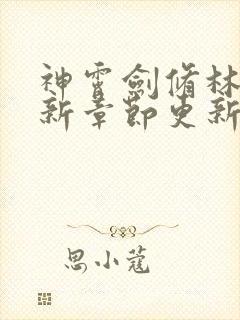 神霄劍脩林
新章節更新
思小蔻